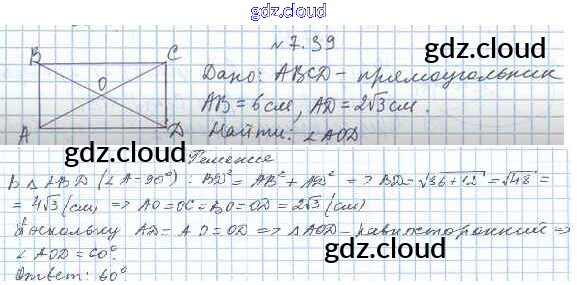 gdz.cloud
№ 7.39
gdz.cloud
B C
O
A D
Дано: ABCD – прямоугольник
AB = 6 см, AD = 2√3 см.
gdz.cloud
Найти: ∠AOD
gdz.cloud
Решение
В △ABD (∠A = 90°): BD² = AB² + AD² => BD = √36+12 = √48 =
= 4√3 (см) => AO = OC = BO = OD = 2√3 (см)
Поскольку AD = AO = OD => △AOD – равносторонний =>
∠AOD = 60°.
gdz.cloud
Ответ: 60°